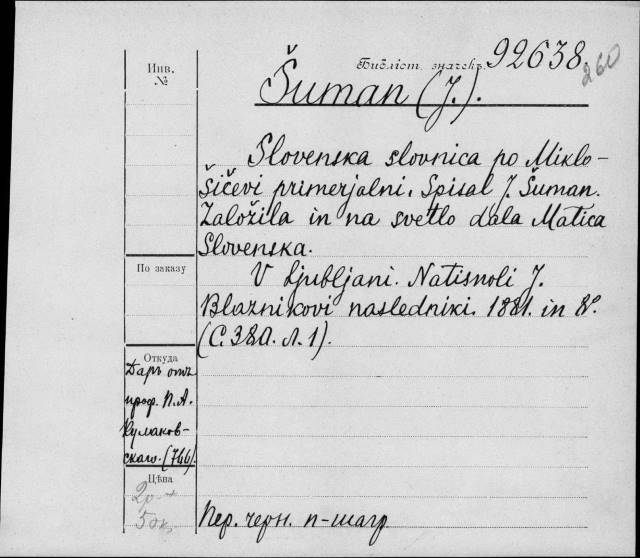 Инв.
№
Библіот. значекъ. 92638.
260
Šuman (J.).
Slovenska slovnica po Miklo-
šičevi primerjalni. Spisal J. Šuman.
Založila in na svetlo dala Matica
Slovenska.
По заказу
V Ljubljani. Natisnoli J.
Blaznikovi nasledniki. 1881. in 8º.
(С. 380. л. 1).
Откуда
Даръ отъ
проф. П. А.
Кулаков-
скаго. (766).
Цѣна
20-
50к.
Пер. черн. п-шагр.